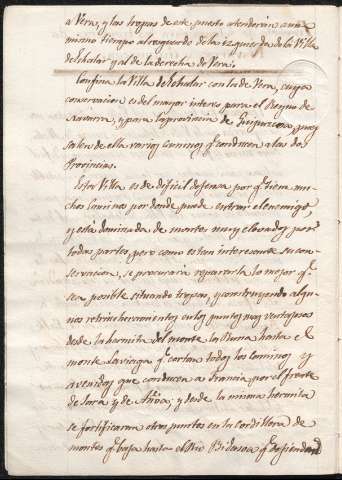 a Vera, y las tropas de este puesto atenderán a un
mismo tiempo al resguardo de la izquierda de la Villa
de Echalar y al de la derecha de Vera.
Confina la Villa de Echalar con la de Vera, cuya
conservacion es del mayor interes para el Reyno de
Navarra, y para la provincia de Guipuzcoa, pues
salen de ella varios caminos qe conducen a las dos
Provincias.
Esta Villa es de dificil defensa por qe tiene mu-
chos caminos por donde puede entrar el enemigo,
y esta dominada de montes muy elevados por
todas partes, pero como es tan interesante su con-
servacion, se procurará repararla lo mejor qe
sea posible situando tropas, y construyendo algu-
nos retrincheramientos en los puntos mas ventajosos
desde la hermita del monte la Runa hasta el
monte qe cortan todos los caminos y
avenidas que conducen a Francia por el frente
de Sara y de Añoa; y desde la misma hermita
se fortificaran otros puntos en la cordillera de
montes qe baja hasta el Rio Bidasoa qe defiendan